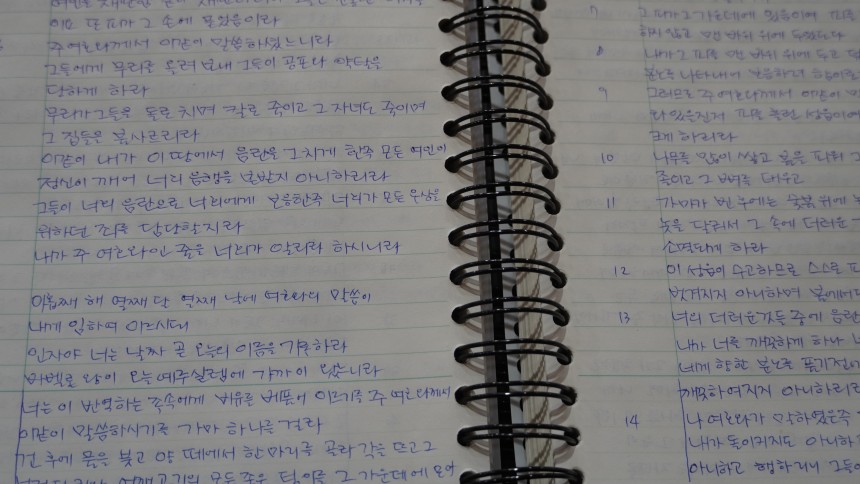 이요 또 피가 그 손에 묻었음이라
주 여호와께서 이같이 말씀하셨느니라
그들에게 무리를 올려 보내 그들이 공포와 약탈을
당하게 하라
무리가 그들을 돌로 치며 칼로 죽이고 그 자녀도 죽이며
그 집들을 불사르리라
이같이 내가 이 땅에서 음란을 그치게 한즉 모든 여인이
정신이 깨어 너희 음행을 본받지 아니하리라
그들이 너희 음란으로 너희에게 보응한즉 너희가 모든 우상을
위하던 죄를 담당할지라
내가 주 여호와인 줄을 너희가 알리라 하시니라
아홉째 해 열째 달 열째 날에 여호와의 말씀이
내게 임하여 이르시되
인자야 너는 날짜 곧 오늘의 이름을 기록하라
바벨론 왕이 오늘 예루살렘에 가까이 왔느니라
너는 이 반역하는 족속에게 비유를 베풀어 이르기를 주 여호와께서
이같이 말씀하시기를 가마 하나를 걸라
건 후에 물을 붓고 양 떼에서 한 마리를 골라 각을 뜨고 그
모든 좋은 덩이를 그 가운데에 모아
7 그 피가 그 가운데에 있음이여 피를
하지 않고 맨 바위 위에 두었도다
8 내가 그 피를 맨 바위 위에 두고
분노를 나타내어 보응하려 함이로
9 그러므로 주 여호와께서 이같이
다 있을진저 피를 흘린 성읍이여
크게 하리라
10 나무를 많이 쌓고 불을 피워 그
졸이고 그 뼈를 태우고
11 가마가 빈 후에는 숯불 위에
놋을 달궈서 그 속에 더러운
소멸되게 하라
12 이 성읍이 수고하므로 스스로
벗겨지지 아니하며 불에서도
13 너의 더러운 것들 중에 음란
내가 너를 깨끗하게 하나
네게 향한 분노를 풀기 전에
깨끗하여지지 아니하리라
14 나 여호와가 말하였은즉
내가 돌이키지도 아니하
아니하고 행하리니 그들이